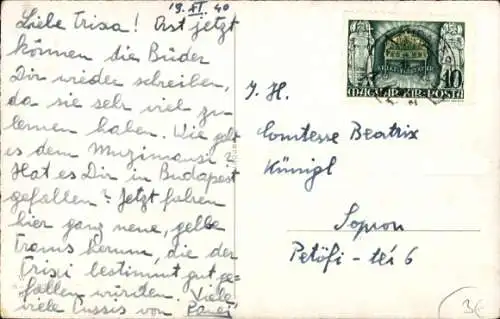 19. XI. 40
Liebe Trisa! Erst jetzt
können die Brüder
Dir wieder schreiben,
da sie sehr viel zu
lernen haben. Wie geht
es dem
Hat es Dir in Budapest
gefallen? Jetzt fahren
hier ganz neue, gelbe
Trams herum, die der
Trisi bestimmt gut ge-
fallen würden. Viele
viele Bussis von
10
MAGYAR KIR. POSTA
I. H.
Comtesse Beatrix
Künigl
Sopron
Petőfi - tér 6
3€